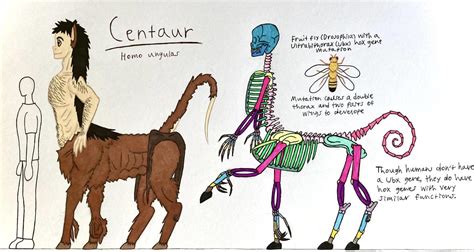 Centaur
Homo ungular
Fruit fly (Drosophila) with a
Ultrabithorax (Ubx) hox gene
mutation
Mutation causes a double
thorax and two pairs of
wings to develope
Though humans don't have
a Ubx gene, they do have
hox genes with very
similar functions.